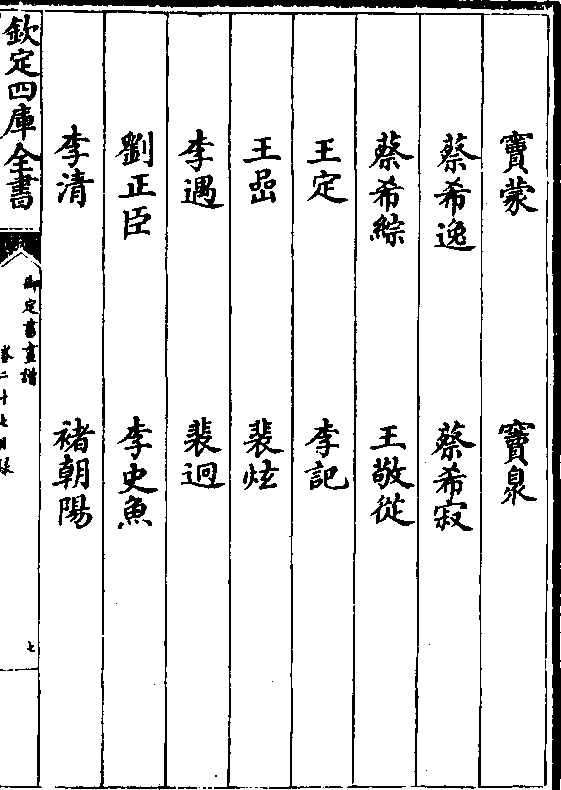 竇蒙　竇臮
蔡希逸　蔡希寂
蔡希綜　王敬從
王定　李記
王嵒　裴炫
李遇　裴迥
劉正臣　李史魚
李清　褚朝陽
欽定四庫全書
御定書畫譜
卷二十七目録
七